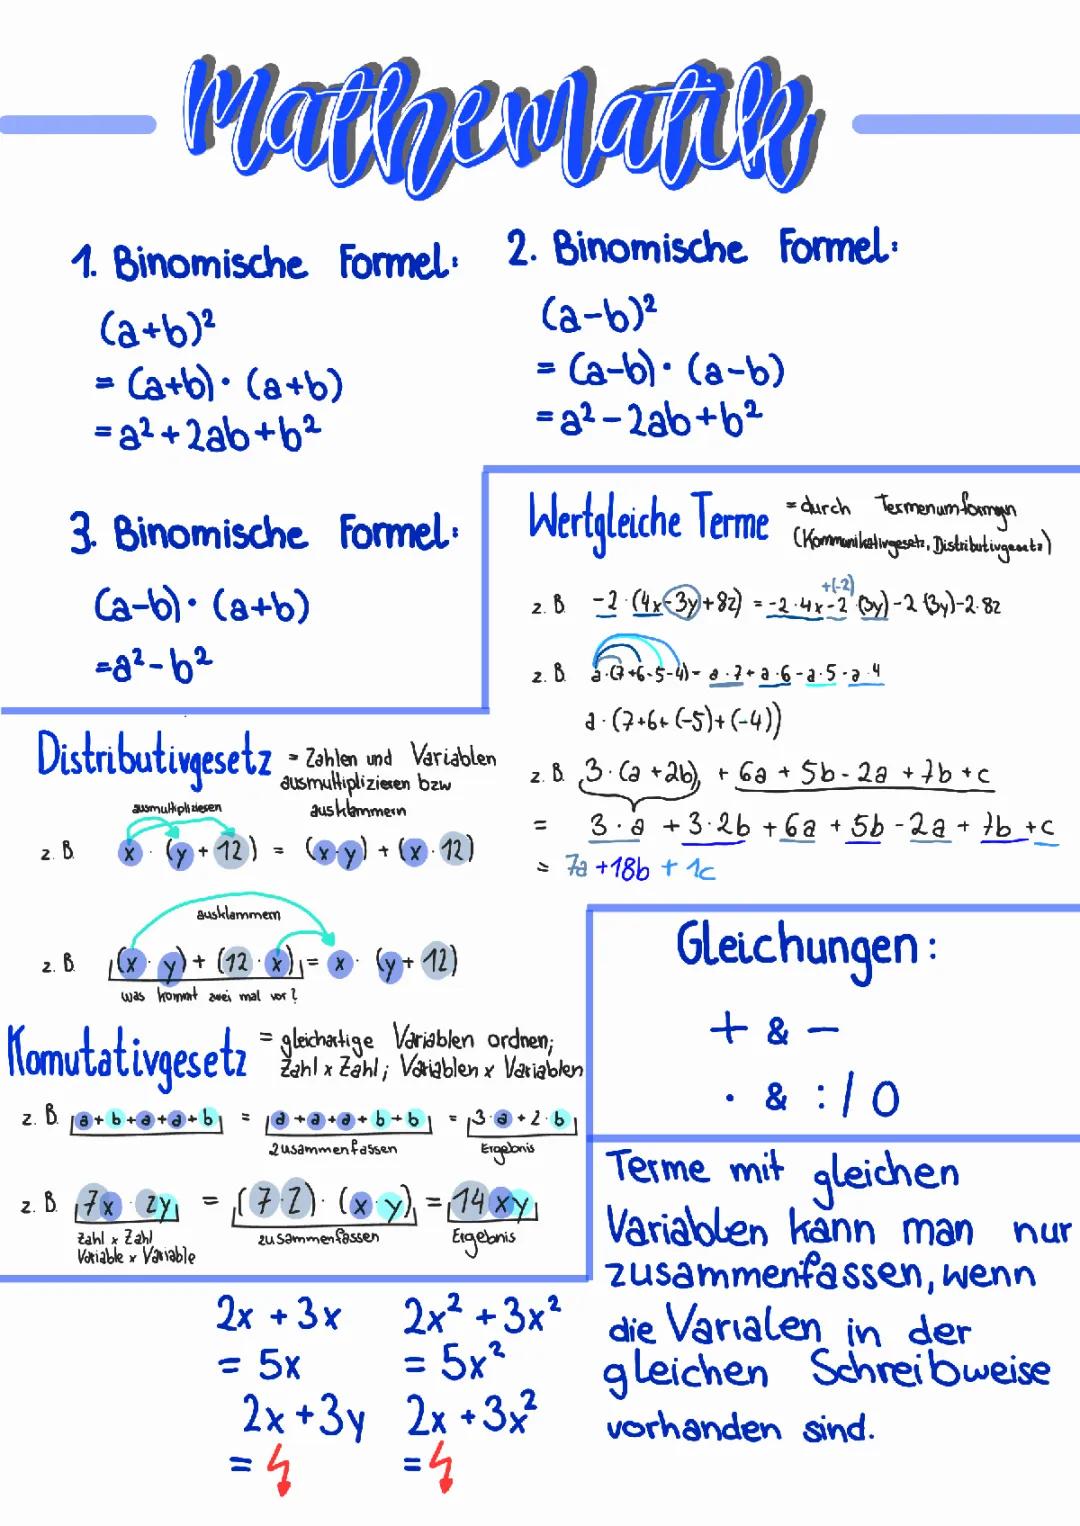 Mathematik
1. Binomische Formel:
(a+b)²
= (a+b)· (a+b)
= a² + 2ab + b²
2. Binomische Formel:
(a-b)²
= (a-b)· (a-b)
= a² - 2ab + b²
3. Binomische Formel:
(a-b)· (a+b)
= a² - b²
Wertgleiche Terme = durch
z. B. -2 · (4x-3y+8z) = -2·4x-2 (3y) -2 (3y)-2·8z
+(-2)
z. B. a·(7+6-5-4)= a·7+a·6-a·5-a·4
a·(7+6+(-5)+(-4))
z. B. 3·(a+2b) + 6a + 5b - 2a + 7b + c
= 3·a + 3·2b + 6a + 5b - 2a + 7b + c
= 7a + 18b + 1c
Distributivgesetz = Zahlen und Variablen
ausmultiplizieren bzw
ausklammern
ausmultiplizieren
z. B. x · (y + 12) = (x·y) + (x·12)
ausklammern
z. B. (x · y) + (12 · x) = x · (y + 12)
was kommt zwei mal vor?
Komutativgesetz = gleichartige Variablen ordnen;
Zahl x Zahl; Variablen x Variablen
z. B. a+b+a+a+b = a+a+a+b+b = 3·a+2·b
zusammenfassen Ergebnis
z. B. 7x · 2y = (7·2) · (x·y) = 14xy
Zahl x Zahl zusammenfassen Ergebnis
Variable x Variable
Gleichungen:
+ & -
· & :/0
Terme mit gleichen
Variablen kann man nur
zusammenfassen, wenn
die Varialen in der
gleichen Schreibweise
vorhanden sind.
2x + 3x
= 5x
2x + 3y
=
2x² + 3x²
= 5x²
2x + 3x²
=